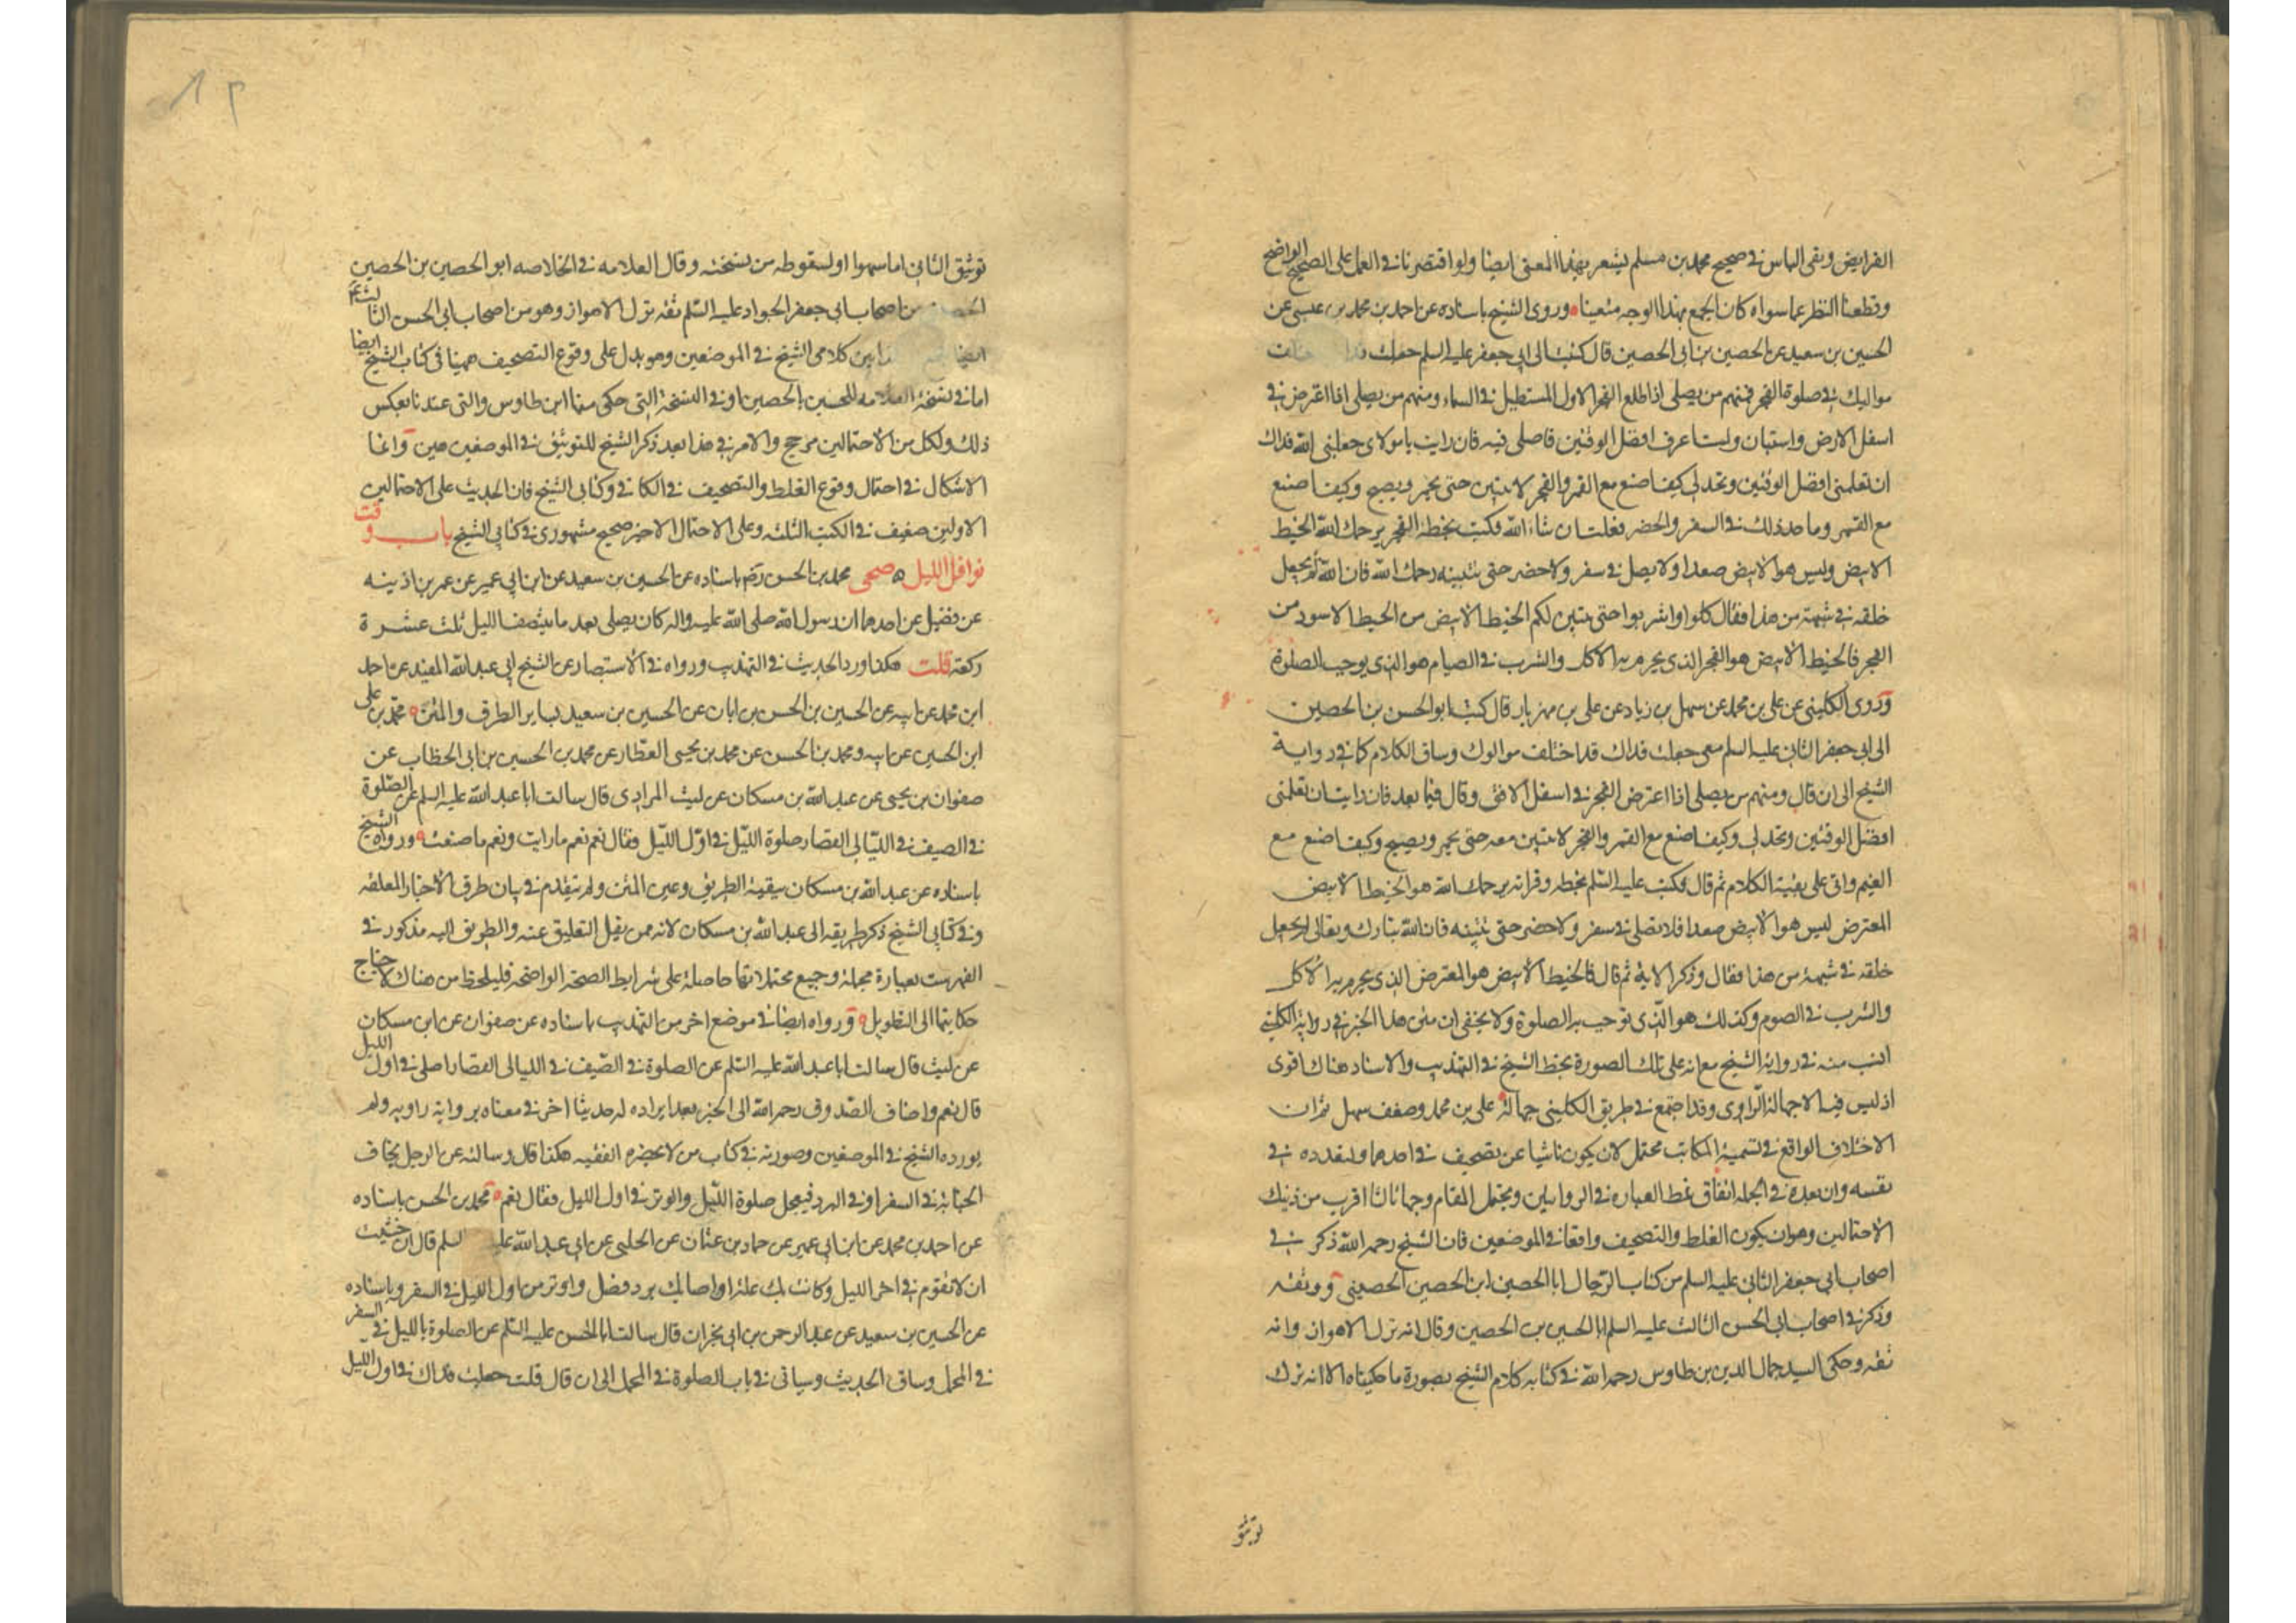 الفرايض ونفى الباس في صحيح محمد بن مسلم يشعر بهذا المعنى ايضا ولو اقتصرنا في العمل على الصحيح الواضح
وقطعنا النظر عما سواه كان الجمع بهذا الوجه متعينا وروى الشيخ باسناده عن احمد بن محمد بن عيسى عن
الحسين بن سعيد عن الحصين بن ابي الحصين قال كتبت الى ابي جعفر عليه السلم جعلت
مواليك في صلوة الفجر فمنهم من يصلى اذا طلع الفجر الاول المستطيل في السماء ومنهم من يصلى اذا اعترض في
اسفل الارض واستبان ولست اعرف افضل الوقتين فاصلى فيه فان رايت يا مولاى جعلنى الله فداك
ان تعلمنى افضل الوقتين وتحد لى كيف اصنع مع القمر والفجر لا يتبين حتى يحمر ويصبح وكيف اصنع
مع القمر وما حد ذلك في السفر والحضر فعلت ان شاء الله فكتب بخطه الفجر يرحمك الله الخيط
الابيض وليس هو الابيض صعدا ولا يصل في سفر ولا حضر حتى يتبينه رحمك الله فان الله لم يجعل
خلقه في شبهة من هذا فقال كلوا واشربوا حتى يتبين لكم الخيط الابيض من الخيط الاسود من
الفجر فالخيط الابيض هو الفجر الذى يحرم به الاكل والشرب في الصيام هو الذى يوجب الصلوة
وروى الكلينى عن على بن محمد عن سهل بن زياد عن على بن مهزيار قال كتب ابو الحسن بن الحصين
الى ابى جعفر الثانى عليه السلم معى جعلت فداك قد اختلف موالوك وساق الكلام كما في رواية
الشيخ الى ان قال ومنهم من يصلى اذا اعترض الفجر في اسفل الافق وقال فيما بعد فان رايت ان تعلمنى
افضل الوقتين وتحد لى وكيف اصنع مع القمر والفجر لا يتبين معه حتى يحمر ويصبح وكيف اصنع مع
الغيم واتى على بقية الكلام ثم قال فكتب عليه السلم بخطه وقراته يرحمك الله هو الخيط الابيض
المعترض ليس هو الابيض صعدا فلا تصلى في سفر ولا حضر حتى تبينه فان الله تبارك وتعالى لم يجعل
خلقه في شبهة من هذا فقال وذكر الاية ثم قال فالخيط الابيض هو المعترض الذى يحرم به الاكل
والشرب في الصوم وكذلك هو الذى توجب به الصلوة ولا يخفى ان متن هذا الخبر في رواية الكلينى
انسب منه في رواية الشيخ مع انه على تلك الصورة بخط الشيخ في التهذيب والاسناد هناك اقوى
اذ ليس فيه الا جهالة الراوى وقد اجتمع في طريق الكلينى جهالة على بن محمد وضعف سهل ثم ان
الاختلاف الواقع في تسمية المكاتب محتمل لان يكون ناشيا عن تصحيف في احدهما ولتعدده في
نفسه وان بعده في الجملة اتفاق نمط العبارة في الروايتين ويحتمل المقام وجها ثالثا اقرب من ذينك
الاحتمالين وهو ان يكون الغلط والتصحيف واقعا في الموضعين فان الشيخ رحمه الله ذكر في
اصحاب ابي جعفر الثانى عليه السلم من كتاب الرجال ابا الحصين ابن الحصين الحصينى ووثقه
وذكر في اصحاب ابي الحسن الثالث عليه السلم ابا الحسين بن الحصين وقال انه نزل الاهواز وانه
ثقه وحكى السيد جمال الدين بن طاوس رحمه الله في كتابه كلام الشيخ بصورة ما حكيناه الا انه ترك
توثيق
توثيق الثانى اما سهوا او لسقوطه من نسخته وقال العلامه في الخلاصه ابو الحصين بن الحصين
من اصحاب ابي جعفر الجواد عليه السلم ثقه نزل الاهواز وهو من اصحاب ابى الحسن الثالث ع
ايضا بين كلامى الشيخ في الموضعين وهو يدل على وقوع التصحيف ههنا في كتاب الشيخ ايضا
اما في نسخة العلامه للحسين بالحصين او في النسخة التى حكى منها ابن طاوس والتى عندنا بعكس
ذلك ولكل من الاحتمالين مرجح والامر في هذا بعد ذكر الشيخ للتوثيق في الموضعين هين وانما
الاشكال في احتمال وقوع الغلط والتصحيف في الكافى وكتابى الشيخ فان الحديث على الاحتمالين
الاولين ضعيف في الكتب الثلثه وعلى الاحتمال الاخير صحيح مشهورى في كتابى الشيخ باب وقت
نوافل الليل صحى محمد بن الحسن رضه باسناده عن الحسين بن سعيد عن ابن ابى عمير عن عمر بن اذينه
عن فضيل عن احدهما ان رسول الله صلى الله عليه واله كان يصلى بعد ما ينتصف الليل ثلث عشرة
ركعة قلت هكذا ورد الحديث في التهذيب ورواه في الاستبصار عن الشيخ ابى عبد الله المفيد عن احمد
ابن محمد عن ابيه عن الحسين بن الحسن بن ابان عن الحسين بن سعيد بساير الطرق والمتن محمد بن على
ابن الحسين عن ابيه ومحمد بن الحسن عن محمد بن يحيى العطار عن محمد بن الحسين بن ابى الخطاب عن
صفوان بن يحيى عن عبد الله بن مسكان عن ليث المرادى قال سالت ابا عبد الله عليه السلم عن الصلوة
في الصيف في الليالى القصار صلوة الليل في اول الليل فقال نعم نعم ما رايت ونعم ما صنعت ورواه الشيخ
باسناده عن عبد الله بن مسكان ببقية الطريق وعين المتن ولم يتقدم في بيان طرق الاخبار المعلقه
وفي كتابى الشيخ ذكر طريقه الى عبد الله بن مسكان لانه ممن يقل التعليق عنه والطريق اليه مذكور في
الفهرست بعبارة مجملة وجميع محتملاتها حاصلة على شرايط الصحة الواضحه فليلحظ من هناك لاحتياج
حكايتها الى التطويل ورواه ايضا في موضع اخر من التهذيب باسناده عن صفوان عن ابن مسكان
عن ليث قال سالت ابا عبد الله عليه السلم عن الصلوة في الصيف في الليالى القصار اصلى في اول الليل
قال نعم واضاف الصدوق رحمه الله الى الخبر بعد ايراده له حديثا اخر في معناه برواية راويه ولم
يورده الشيخ في الموضعين وصورته في كتاب من لا يحضره الفقيه هكذا قال وسالته عن الرجل يخاف
الجنابة في السفر او في البرد فيعجل صلوة الليل والوتر في اول الليل فقال نعم محمد بن الحسن باسناده
عن احمد بن محمد عن ابن ابى عمير عن حماد بن عثمان عن الحلبى عن ابى عبد الله عليه السلم قال ان خشيت
ان لا تقوم في اخر الليل وكانت بك علة او اصابك برد فصل واوتر من اول الليل في السفر وباسناده
عن الحسين بن سعيد عن عبد الرحمن بن ابى نجران قال سالت ابا الحسن عليه السلم عن الصلوة بالليل في السفر
في المحمل وساق الحديث وسياتى في باب الصلوة في المحمل الى ان قال قلت جعلت فداك في اول الليل